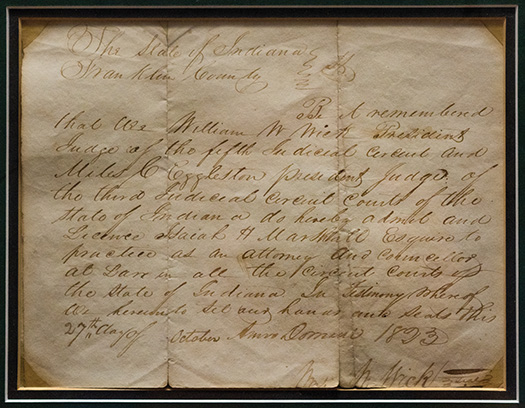 The State of Indiana
Franklin County
Be it remembered
that we William W Wick President
Judge of the fifth Judicial circuit and
Miles C Eggleston president Judge of
the third Judicial circuit courts of the
State of Indiana do hereby admit and
Licence Isaiah H Marshall Esquire to
practice as an attorney and Councellor
at Law in all the circuit courts of
the State of Indiana In testimony whereof
we hereunto set our hands and seals this
27th day of October Anno Domini 1823
W Wick